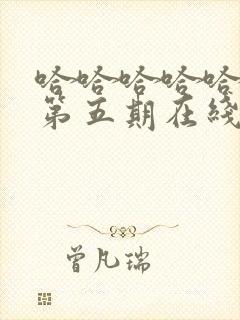 哈哈哈哈哈
第五期在綫
曾凡瑞